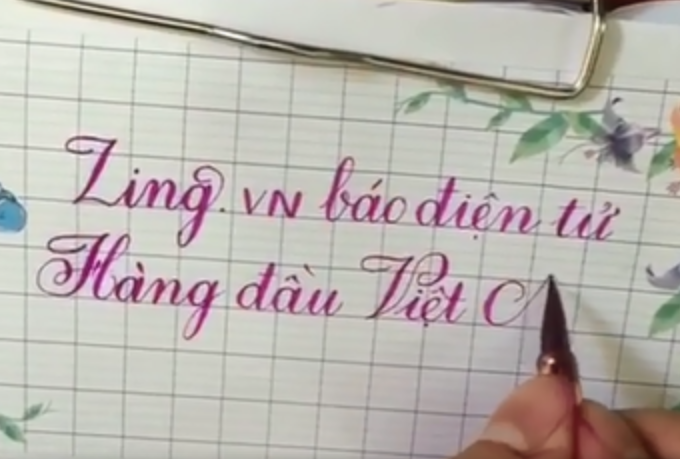 Zing.VN báo điện tử
Hàng đầu Việt